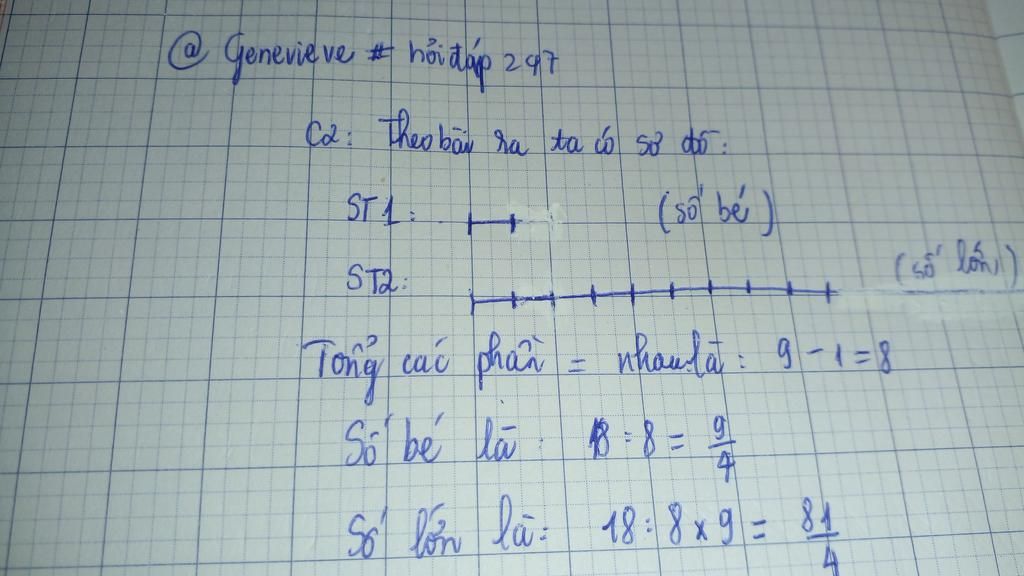 @ Genevieve # hỏi đáp 247
C2: Theo bài ra ta có sơ đồ:
ST1: (số bé)
ST2: (số lớn)
Tổng các phần = nhau là: 9 - 1 = 8
Số bé là: 18 : 8 = 9/4
Số lớn là: 18 : 8 x 9 = 81/4